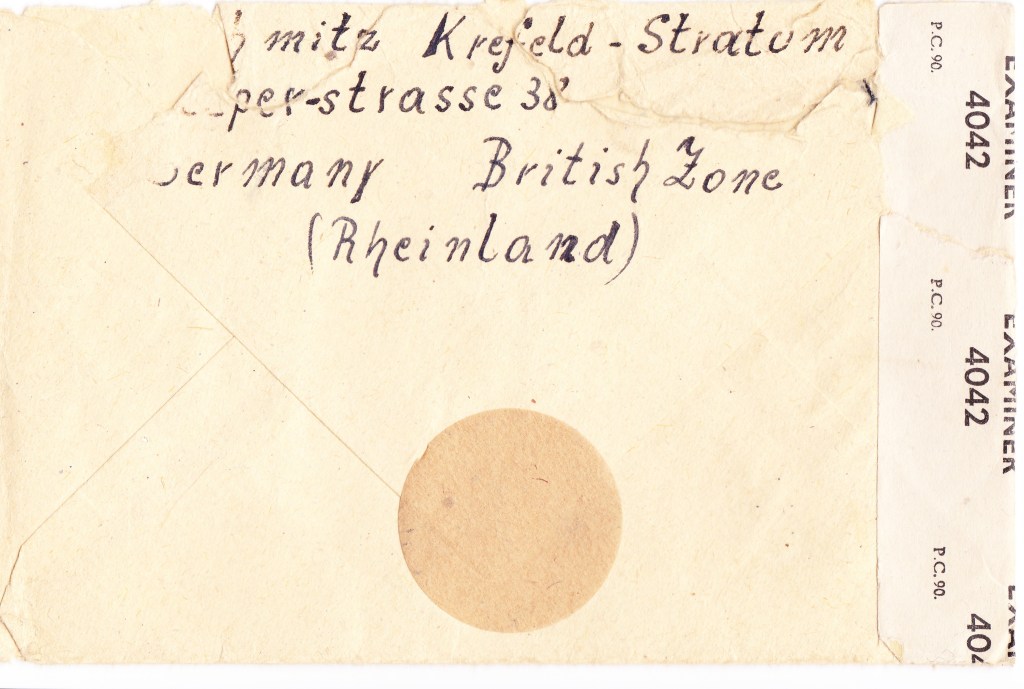 hmitz Krefeld - Stratum
per-strasse 38
Germany British Zone
(Rheinland)
P.C. 90.
EXAMINER
4042
P.C. 90.
EXAMINER
4042
P.C. 90.